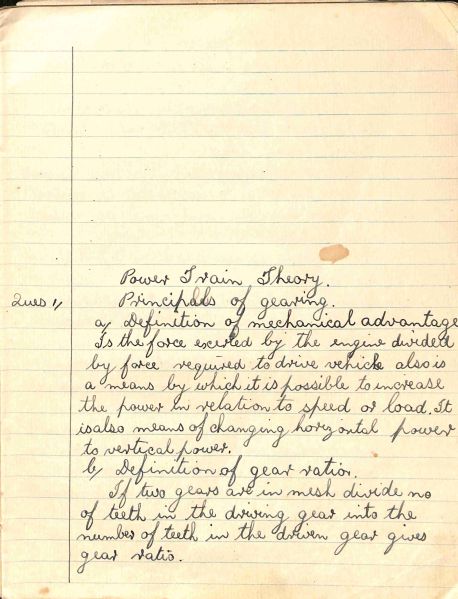 Power Train Theory.
Ques 1/ Principals of gearing.
a/ Definition of mechanical advantage
Is the force exerted by the engine divided
by force required to drive vehicle also is
a means by which it is possible to increase
the power in relation to speed or load. It
is also means of changing horizontal power
to vertical power.
b/ Definition of gear ration.
If two gears are in mesh divide no
of teeth in the driving gear into the
number of teeth in the driven gear gives
gear ratio.